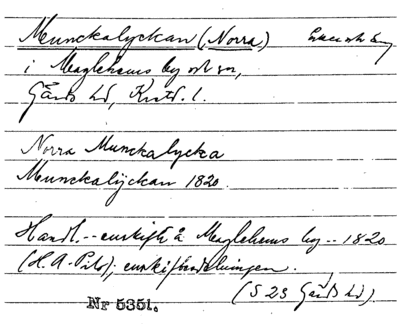 Munckalyckan (Norra)
i Maglehems by och sn,
Gärds hd, Krstd. l.
Norra Munckalycka
Munckalijckan 1820.
Handl. -- enskifte å Maglehems by -- 1820
(H. A-Pilo); enskifteshandlingen.
(S 23 Gärds hd).
Nr 5351.